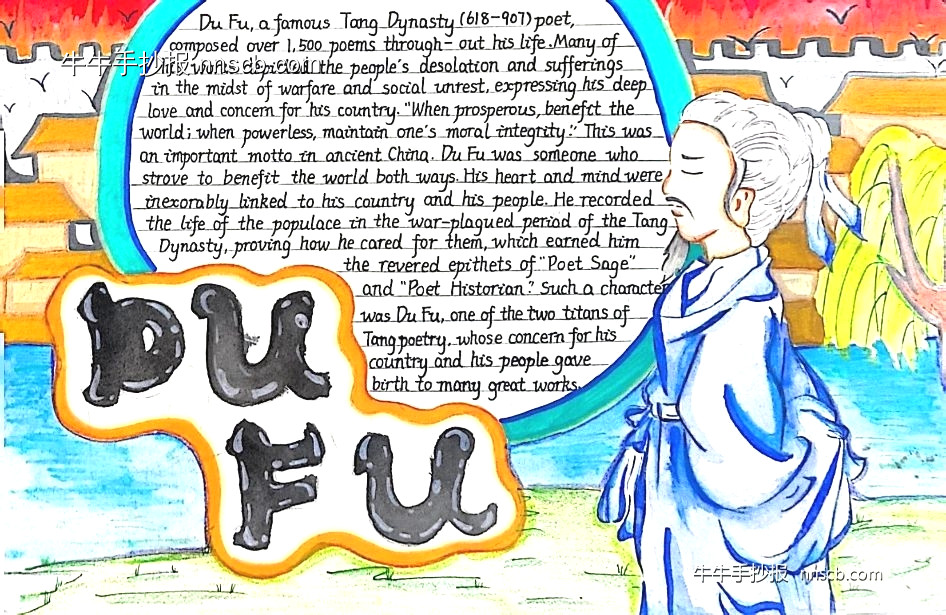 Du Fu, a famous Tang Dynasty (618-907) poet,
composed over 1,500 poems through- out his life. Many of
his works depicted the people's desolation and sufferings
in the midst of warfare and social unrest, expressing his deep
love and concern for his country. "When prosperous, benefit the
world; when powerless, maintain one's moral integrity." This was
an important motto in ancient China. Du Fu was someone who
strove to benefit the world both ways. His heart and mind were
inexorably linked to his country and his people. He recorded
the life of the populace in the war-plagued period of the Tang
Dynasty, proving how he cared for them, which earned him
the revered epithets of "Poet Sage"
and "Poet Historian". Such a character
was Du Fu, one of the two titans of
Tang poetry, whose concern for his
country and his people gave
birth to many great works.
DU
FU
牛牛手抄报 nnscb.com
牛牛手抄报 nnscb.com